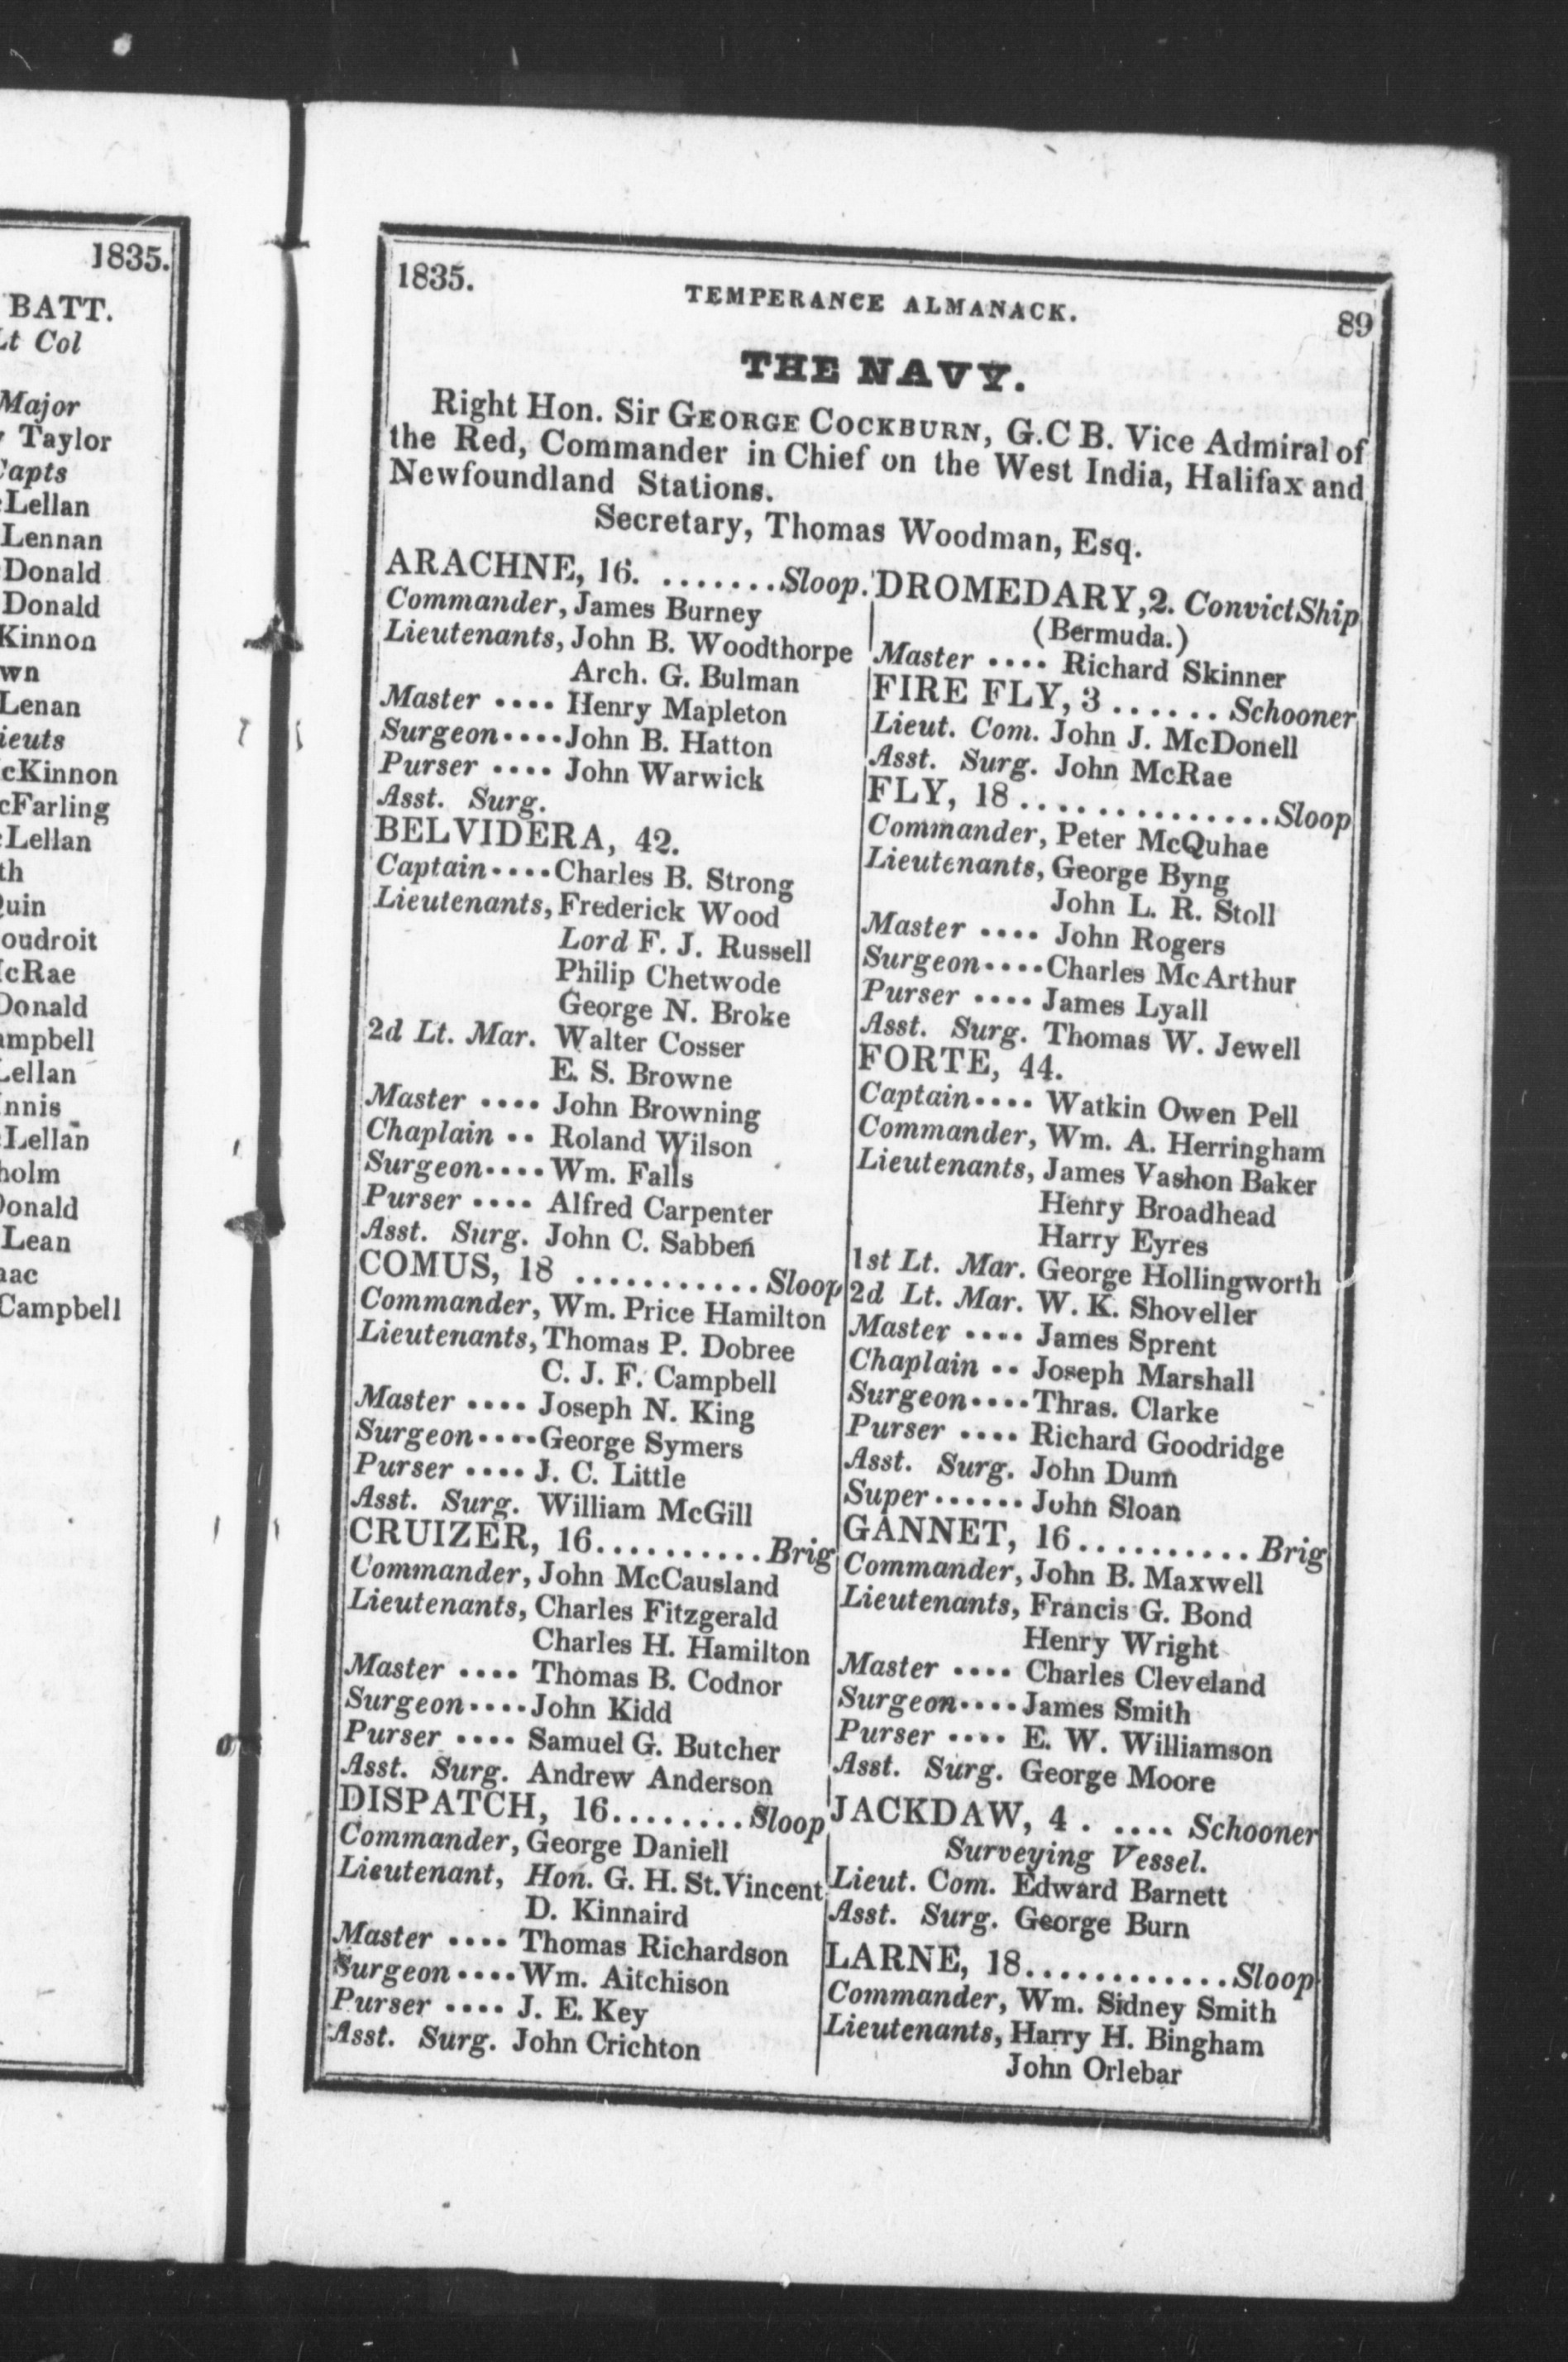 1835.
BATT.
Lt Col
Major
Taylor
Capts
Lellan
Lennan
Donald
Donald
Kinnon
wn
Lenan
ieuts
cKinnon
cFarling
Lellan
th
Quin
oudroit
cRae
Donald
ampbell
Lellan
nnis
Lellan
holm
Donald
Lean
aac
Campbell
1835. TEMPERANCE ALMANACK. 89
THE NAVY.
Right Hon. Sir GEORGE COCKBURN, G.C B. Vice Admiral of
the Red, Commander in Chief on the West India, Halifax and
Newfoundland Stations.
Secretary, Thomas Woodman, Esq.
ARACHNE, 16. ........Sloop.
Commander, James Burney
Lieutenants, John B. Woodthorpe
Arch. G. Bulman
Master .... Henry Mapleton
Surgeon....John B. Hatton
Purser .... John Warwick
Asst. Surg.
BELVIDERA, 42.
Captain....Charles B. Strong
Lieutenants, Frederick Wood
Lord F. J. Russell
Philip Chetwode
George N. Broke
2d Lt. Mar. Walter Cosser
E. S. Browne
Master .... John Browning
Chaplain .. Roland Wilson
Surgeon....Wm. Falls
Purser .... Alfred Carpenter
Asst. Surg. John C. Sabben
COMUS, 18 ...........Sloop
Commander, Wm. Price Hamilton
Lieutenants, Thomas P. Dobree
C. J. F. Campbell
Master .... Joseph N. King
Surgeon....George Symers
Purser .... J. C. Little
Asst. Surg. William McGill
CRUIZER, 16..........Brig
Commander, John McCausland
Lieutenants, Charles Fitzgerald
Charles H. Hamilton
Master .... Thomas B. Codnor
Surgeon....John Kidd
Purser .... Samuel G. Butcher
Asst. Surg. Andrew Anderson
DISPATCH, 16........Sloop
Commander, George Daniell
Lieutenant, Hon. G. H. St.Vincent
D. Kinnaird
Master .... Thomas Richardson
Surgeon....Wm. Aitchison
Purser .... J. E. Key
Asst. Surg. John Crichton
DROMEDARY,2. ConvictShip
(Bermuda.)
Master .... Richard Skinner
FIRE FLY, 3 ...... Schooner
Lieut. Com. John J. McDonell
Asst. Surg. John McRae
FLY, 18 ..............Sloop
Commander, Peter McQuhae
Lieutenants, George Byng
John L. R. Stoll
Master .... John Rogers
Surgeon....Charles McArthur
Purser .... James Lyall
Asst. Surg. Thomas W. Jewell
FORTE, 44.
Captain.... Watkin Owen Pell
Commander, Wm. A. Herringham
Lieutenants, James Vashon Baker
Henry Broadhead
Harry Eyres
1st Lt. Mar. George Hollingworth
2d Lt. Mar. W. K. Shoveller
Master .... James Sprent
Chaplain .. Joseph Marshall
Surgeon....Thras. Clarke
Purser .... Richard Goodridge
Asst. Surg. John Dunn
Super...... John Sloan
GANNET, 16.......... Brig
Commander, John B. Maxwell
Lieutenants, Francis G. Bond
Henry Wright
Master .... Charles Cleveland
Surgeon....James Smith
Purser .... E. W. Williamson
Asst. Surg. George Moore
JACKDAW, 4 . .... Schooner
Surveying Vessel.
Lieut. Com. Edward Barnett
Asst. Surg. George Burn
LARNE, 18............Sloop
Commander, Wm. Sidney Smith
Lieutenants, Harry H. Bingham
John Orlebar